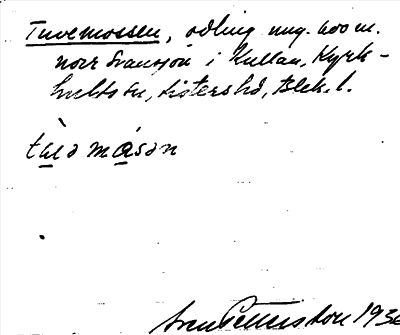 Tuvemossen, odling ung. 600 m.
norr Svansjön i Kullan, Kyrk-
hults sn, Listers hd, Blek. l.
Sven Petterson 193